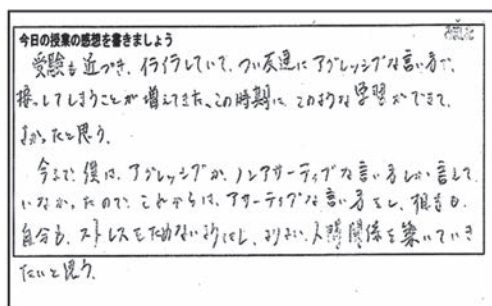 今日の授業の感想を書きましょう
受験も近づき、イライラしていて、つい友達にアグレッシブな言い方で、
接してしまうことが増えてきた、この時期に、このような学習ができて、
よかったと思う。
今まで、僕は、アグレッシブか、ノンアサーティブな言い方しか言えて
いなかったので、これからは、アサーティブな言い方をし、相手も、
自分も、ストレスをためないようにし、よりよい人間関係を築いていき
たいと思う。